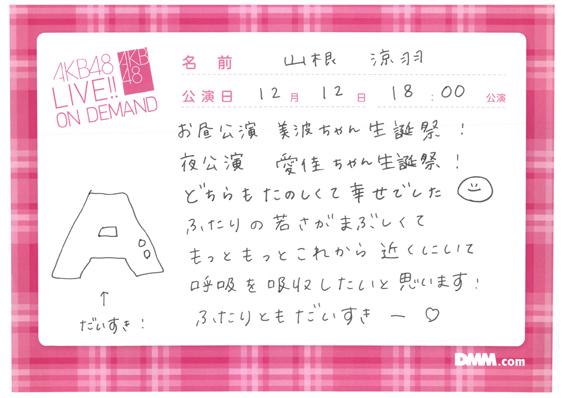 AKB48
LIVE!!
ON DEMAND
AKB
48
名前 山根 涼羽
公演日 12月 12日 18:00 公演
お昼公演 美波ちゃん生誕祭!
夜公演 愛佳ちゃん生誕祭!
どちらもたのしくて幸せでした
ふたりの若さがまぶしくて
もっともっとこれから近くにいて
呼吸を吸収したいと思います!
ふたりともだいすきー♡
A
↑
だいすき!
DMM.com